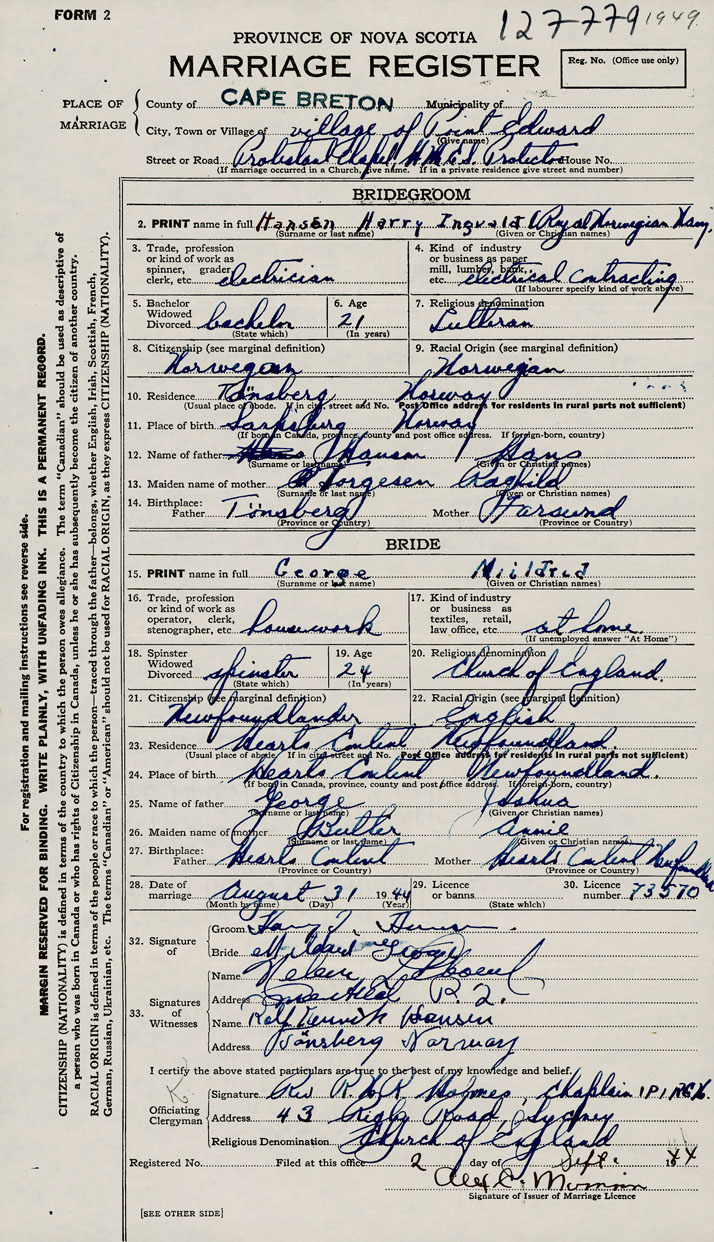 FORM 2
127779 1949
PROVINCE OF NOVA SCOTIA
MARRIAGE REGISTER
Reg. No. (Office use only)
PLACE OF MARRIAGE
County of CAPE BRETON Municipality of
City, Town or Village of village of Point Edward
(Give name)
Street or Road Protestant Chapel H.M.C.S. Protector House No.
(If marriage occurred in a Church, give name. If in a private residence give street and number)
BRIDEGROOM
2. PRINT name in full Hansen Harry Ingvald (Royal Norwegian Navy)
(Surname or last name) (Given or Christian names)
3. Trade, profession or kind of work as spinner, grader, clerk, etc. electrician
4. Kind of industry or business as paper mill, lumber, bank, etc. electrical contracting
(If labourer specify kind of work above)
5. Bachelor Widowed Divorced bachelor
(State which)
6. Age 21
(In years)
7. Religious denomination Lutheran
8. Citizenship (see marginal definition) Norwegian
9. Racial Origin (see marginal definition) Norwegian
10. Residence Tönsberg, Norway
(Usual place of abode. If in city, street and No. Post Office address for residents in rural parts not sufficient)
11. Place of birth Sarpsburg Norway
(If born in Canada, province, county and post office address. If foreign-born, country)
12. Name of father Hansen Hans
(Surname or last name) (Given or Christian names)
13. Maiden name of mother Torgesen Raghild
(Surname or last name) (Given or Christian names)
14. Birthplace: Father Tönsberg Mother Farsund
(Province or Country) (Province or Country)
BRIDE
15. PRINT name in full George Mildred
(Surname or last name) (Given or Christian names)
16. Trade, profession or kind of work as operator, clerk, stenographer, etc. housework
17. Kind of industry or business as textiles, retail, law office, etc. at home
(If unemployed answer "At Home")
18. Spinster Widowed Divorced spinster
(State which)
19. Age 24
(In years)
20. Religious denomination Church of England.
21. Citizenship (see marginal definition) Newfoundlander
22. Racial Origin (see marginal definition) English
23. Residence Hearts Content Newfoundland.
(Usual place of abode. If in city street and No. Post Office address for residents in rural parts not sufficient)
24. Place of birth Hearts Content Newfoundland.
(If born in Canada, province, county and post office address. If foreign-born, country)
25. Name of father George Joshua
(Surname or last name) (Given or Christian names)
26. Maiden name of mother Butler Annie
(Surname or last name) (Given or Christian names)
27. Birthplace: Father Hearts Content Mother Hearts Content Newfoundland
(Province or Country) (Province or Country)
28. Date of marriage August 31 1944
(Month by name) (Day) (Year)
29. Licence or banns
(State which)
30. Licence number 73570
32. Signature of
Groom Harry I. Hansen.
Bride Mildred George
33. Signatures of Witnesses
Name Helen
Address R. 2.
Name Rolf Hansen
Address Tönsberg Norway
I certify the above stated particulars are true to the best of my knowledge and belief.
Officiating Clergyman
Signature Rev R.H.R Holmes, Chaplain
Address 43 Rigby Road, Sydney
Religious Denomination Church of England
Registered No. Filed at this office 2 day of Sept. 1944
Signature of Issuer of Marriage Licence
[SEE OTHER SIDE]
For registration and mailing instructions see reverse side.
MARGIN RESERVED FOR BINDING. WRITE PLAINLY, WITH UNFADING INK. THIS IS A PERMANENT RECORD.
CITIZENSHIP (NATIONALITY) is defined in terms of the country to which the person owes allegiance. The term "Canadian" should be used as descriptive of
a person who was born in Canada or who has rights of Citizenship in Canada, unless he or she has subsequently become the citizen of another country.
RACIAL ORIGIN is defined in terms of the people or race to which the person—traced through the father—belongs, whether English, Irish, Scottish, French,
German, Russian, Ukrainian, etc. The terms "Canadian" or "American" should not be used for RACIAL ORIGIN, as they express CITIZENSHIP (NATIONALITY).